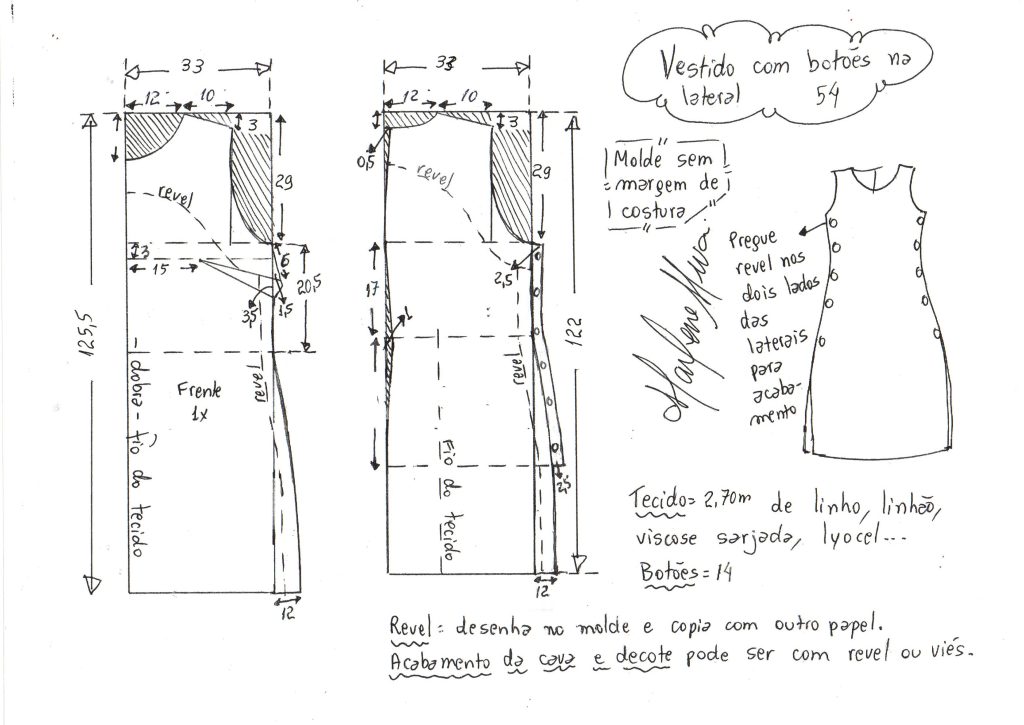 Vestido com botões na
lateral 54
33
12 10
3
29
revel
3
15
6
3,5
1,5
20,5
125,5
Frente
1x
revel
dobra-fio do tecido
12
33
12 10
3
0,5
revel
29
2,5
17
1
122
revel
Fio do tecido
2,5
12
Molde sem
margem de
costura
Pregue
revel nos
dois lados
das
laterais
para
acaba-
mento
Tecido= 2,70m de linho, linhão,
viscose sarjada, lyocel...
Botões=14
Revel= desenha no molde e copia com outro papel.
Acabamento da cava e decote pode ser com revel ou viés.